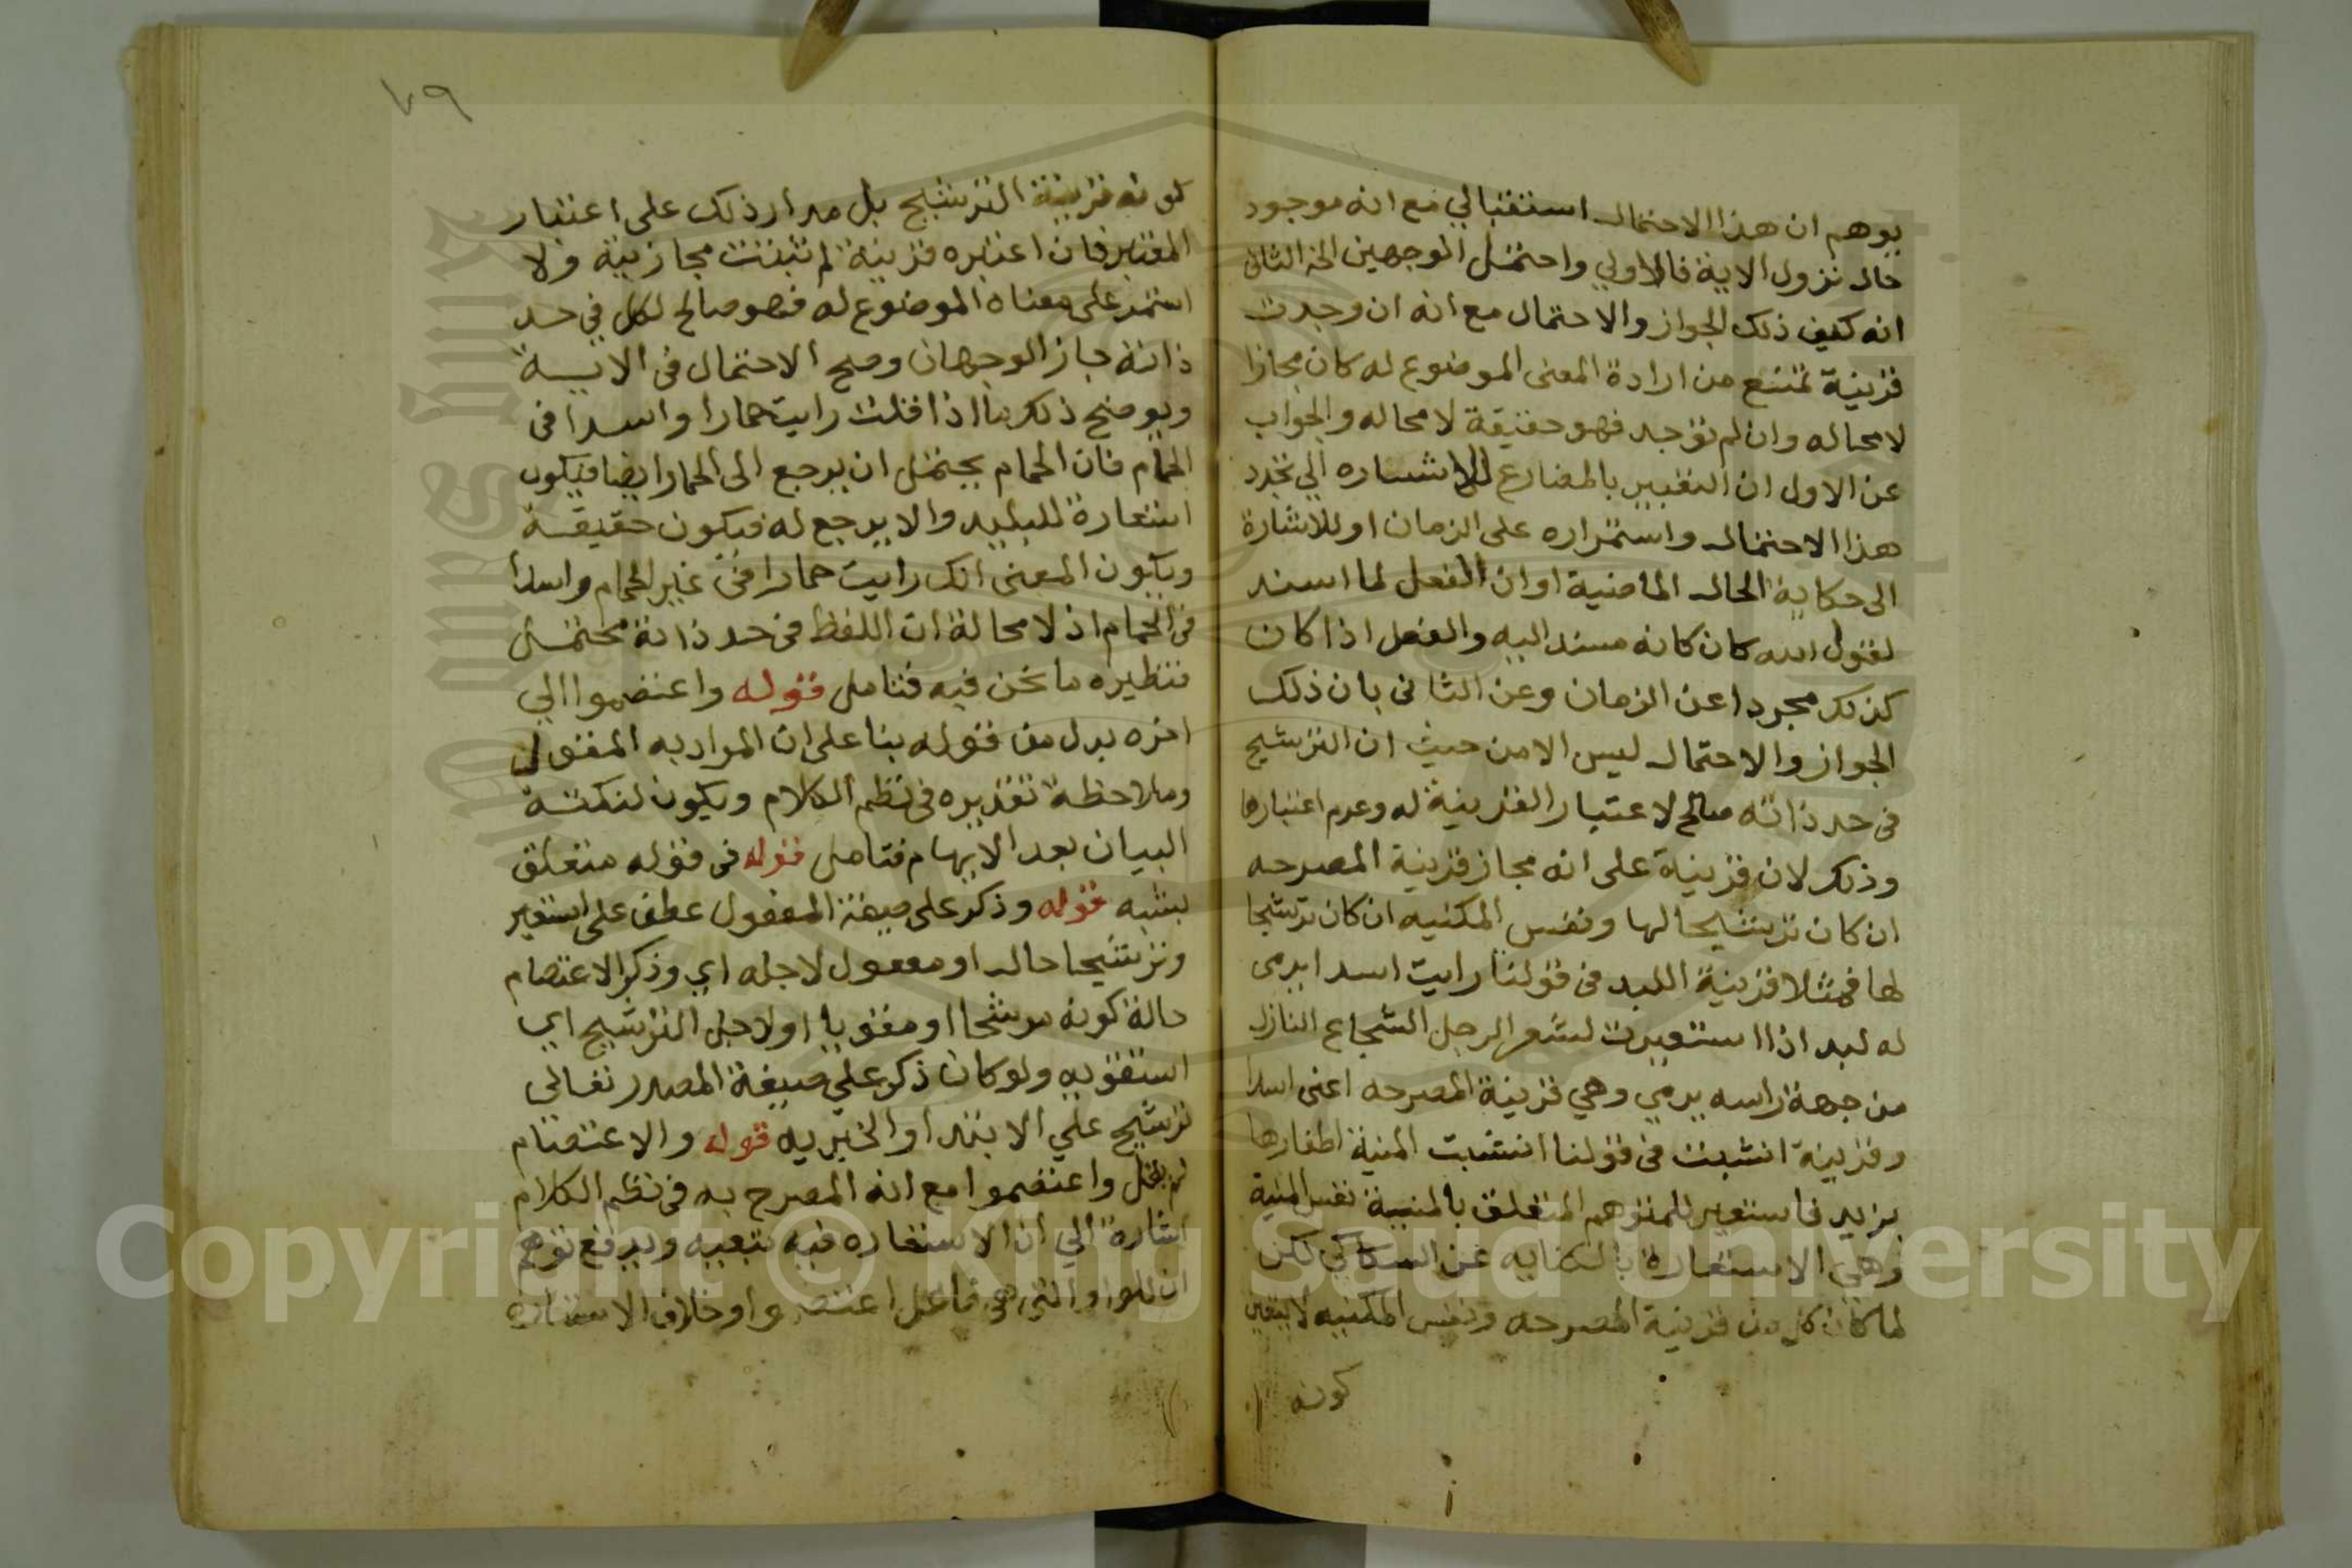 يوهم ان هذا الاحتمال استقبالي مع انه موجود
حال نزول الاية فالاولي واحتمل الوجهين الخ الثاني
انه كيف ذلك الجواز والاحتمال مع انه ان وجدت
قرينة تمنع من ارادة المعنى الموضوع له كان مجازا
لا محاله وان لم توجد فهو حقيقة لا محاله والجواب
عن الاول ان التعبير بالمضارع للاشاره الي تجدد
هذا الاحتمال واستمراره على الزمان او للاشارة
الى حكاية الحال الماضية او ان الفعل لما اسند
لقول الله كان كانه مسند اليه والفعل اذا كان
كذلك مجردا عن الزمان وعن الثاني بان ذلك
الجواز والاحتمال ليس الا من حيث ان الترشيح
في حد ذاته صالح لاعتبار القرينة له وعدم اعتبارها
وذلك لان قرينة على انه مجاز قرينة المصرحه
ان كان ترشيحا لها ونفس المكنيه ان كان ترشيحا
لها فمثلا قرينة اللبد في قولنا رايت اسدا يرمى
له لبد اذا استعيرت لشعر الرجل الشجاع النازل
من جهة راسه يرمي وهي قرينة المصرحه اعنى اسدا
وقرينة انشبت في قولنا انشبت المنية اظفارها
بزيد فاستعير للمتوهم المتعلق بالمنية نفس المنية
وهي الاستعارة بالكنايه عن السكاكي لكن
لما كان كل من قرينة المصرحه ونفس المكنيه لا يتعين
كونه
٧٩
كونه قرينة الترشيح بل مدار ذلك على اعتبار
المعتبر فان اعتبره قرينة لم تثبت مجازيته ولا
استمر على معناه الموضوع له فهو صالح لكل في حد
ذاته جاز الوجهان وصح الاحتمال في الاية
ويوضح ذلك ما اذا قلت رايت حمارا واسدا في
الحمام فان الحمام يحتمل ان يرجع الى الحمار ايضا فيكون
استعارة للبليد والا يرجع له فيكون حقيقة
ويكون المعنى انك رايت حمارا في غير الحمام واسدا
في الحمام اذ لا محالة ان اللفظ في حد ذاته محتمل
فنظيره ما نحن فيه فتامل قوله واعتصموا الي
اخره بدل من قوله بنا على ان المراد به المقول
وملاحظة تقديره في نظم الكلام ويكون لنكتة
البيان بعد الابهام فتامل قوله في قوله متعلق
بشبه قوله وذكر على صيغة المفعول عطف على استعير
وترشيحا حال او مفعول لاجله اي وذكر الاعتصام
حالة كونه مرشحا او مقويا او لاجل الترشيح اي
التقويه ولو كان ذكر علي صيغة المصدر تعالي
ترشيح علي الابتدا والخبريه قوله والاعتصام
لم يقل واعتصموا مع انه المصرح به في نظم الكلام
اشارة الي ان الاستعاره فيه تبعيه ويدفع توهم
ان للواو التي هي فاعل اعتصموا دخلا في الاستعاره